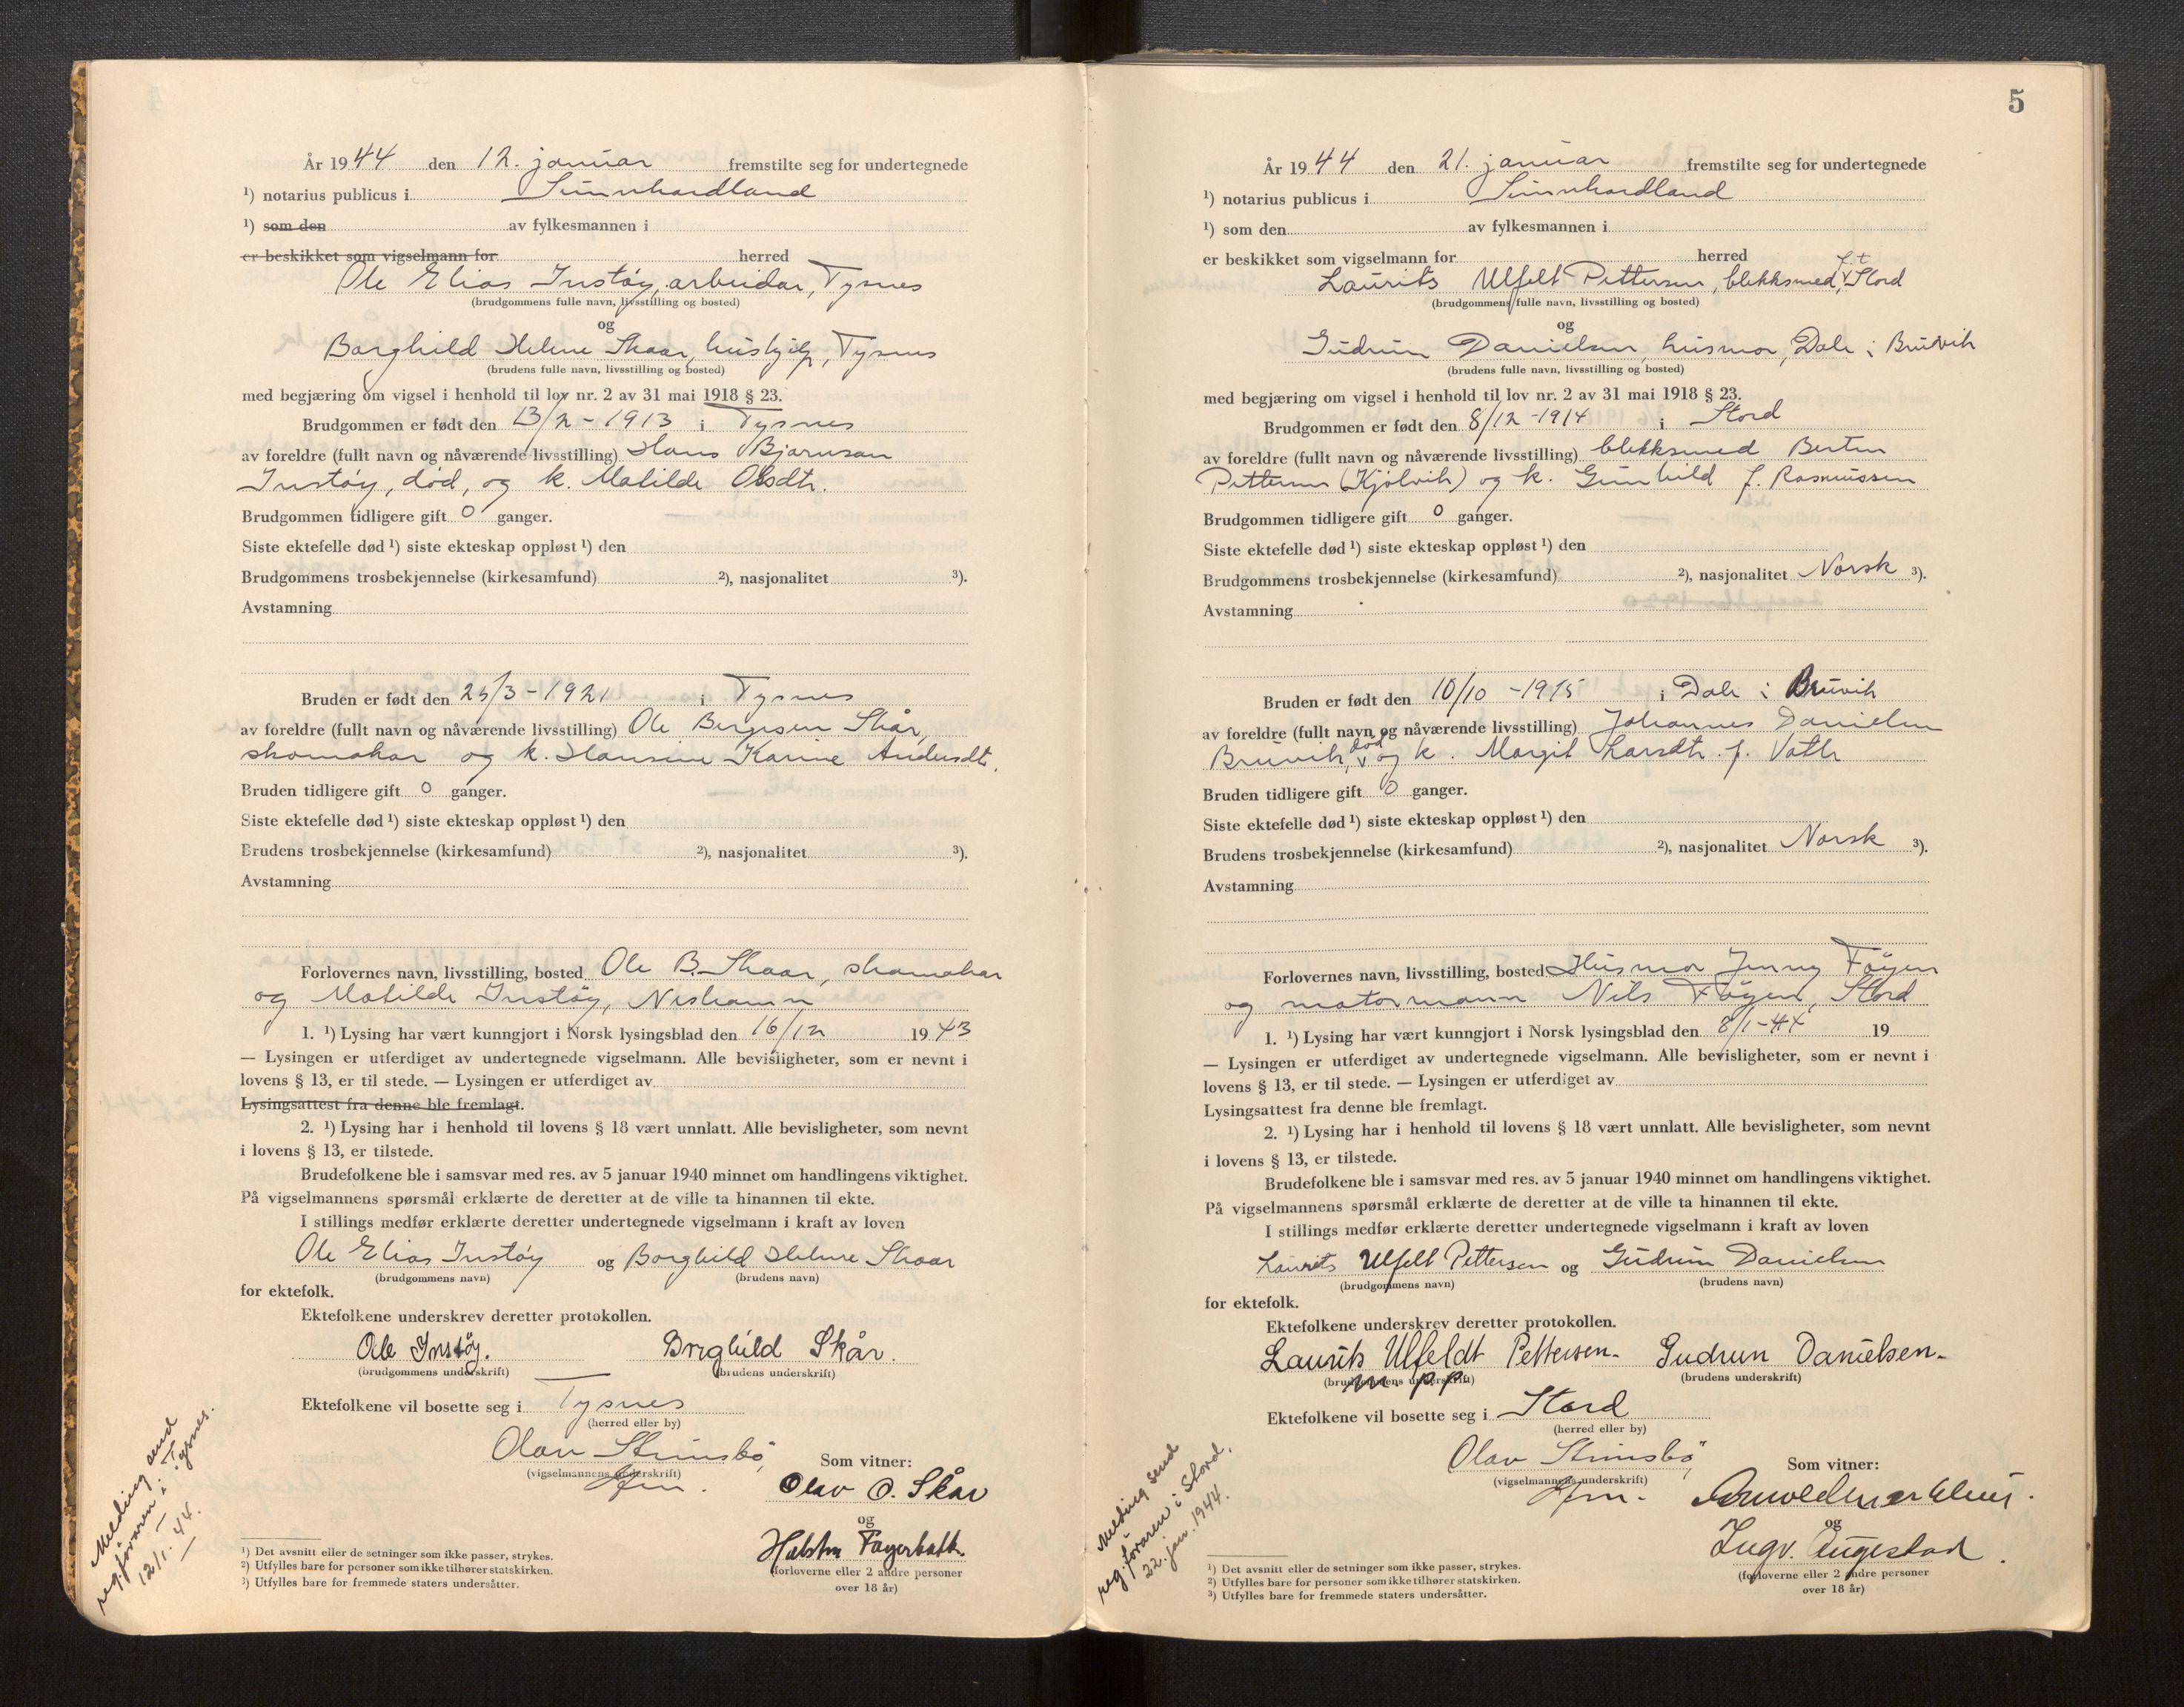 År 1944 den 12. januar fremstilte seg for undertegnede
¹) notarius publicus i Sunnhordland
¹) som den av fylkesmannen i
er beskikket som vigselmann for herred
Ole Elias Instøy, arbeidar, Tysnes
(brudgommens fulle navn, livsstilling og bosted)
og
Borghild Helene Skaar, hushjelp, Tysnes
(brudens fulle navn, livsstilling og bosted)
med begjæring om vigsel i henhold til lov nr. 2 av 31 mai 1918 § 23.
Brudgommen er født den 13/2 - 1913 i Tysnes
av foreldre (fullt navn og nåværende livsstilling) Hans Bjarnson
Instøy, død, og k. Matilde Olsdtr.
Brudgommen tidligere gift 0 ganger.
Siste ektefelle død ¹) siste ekteskap oppløst ¹) den
Brudgommens trosbekjennelse (kirkesamfund) ²), nasjonalitet ³).
Avstamning
Bruden er født den 25/3 - 1921 i Tysnes
av foreldre (fullt navn og nåværende livsstilling) Ole Bergesen Skår,
skomakar og k. Hansine Karine Andersdtr.
Bruden tidligere gift 0 ganger.
Siste ektefelle død ¹) siste ekteskap oppløst ¹) den
Brudens trosbekjennelse (kirkesamfund) ²), nasjonalitet ³).
Avstamning
Forlovernes navn, livsstilling, bosted Ole B. Skaar, skomakar
og Matilde Instøy, Neshamn
1. ¹) Lysing har vært kunngjort i Norsk lysingsblad den 16/12 1943
— Lysingen er utferdiget av undertegnede vigselmann. Alle bevisligheter, som er nevnt i
lovens § 13, er til stede. — Lysingen er utferdiget av
Lysingsattest fra denne ble fremlagt.
2. ¹) Lysing har i henhold til lovens § 18 vært unnlatt. Alle bevisligheter, som nevnt
i lovens § 13, er tilstede.
Brudefolkene ble i samsvar med res. av 5 januar 1940 minnet om handlingens viktighet.
På vigselmannens spørsmål erklærte de deretter at de ville ta hinannen til ekte.
I stillings medfør erklærte deretter undertegnede vigselmann i kraft av loven
Ole Elias Instøy og Borghild Helene Skaar
(brudgommens navn) (brudens navn)
for ektefolk.
Ektefolkene underskrev deretter protokollen.
Ole Instøy. Brghild Skår.
(brudgommens underskrift) (brudens underskrift)
Ektefolkene vil bosette seg i Tysnes
(herred eller by)
Olav Steinsbø,
(vigselmannens underskrift)
Som vitner:
Olav O. Skår
og
(forloverne eller 2 andre personer
over 18 år)
Melding send
reg.føraren i Tysnes.
12/1. 44.
¹) Det avsnitt eller de setninger som ikke passer, strykes.
²) Utfylles bare for personer som ikke tilhører statskirken.
³) Utfylles bare for fremmede staters undersåtter.
5
År 1944 den 21. januar fremstilte seg for undertegnede
¹) notarius publicus i Sunnhordland
¹) som den av fylkesmannen i
er beskikket som vigselmann for herred
f.t
Laurits Ulfelt Pettersen, blekksmed, Stord
(brudgommens fulle navn, livsstilling og bosted)
og
Gudrun Danielsen, husmor, Dale i Bruvik
(brudens fulle navn, livsstilling og bosted)
med begjæring om vigsel i henhold til lov nr. 2 av 31 mai 1918 § 23.
Brudgommen er født den 8/12 - 1914 i Stord
av foreldre (fullt navn og nåværende livsstilling) blekksmed Bertin
Pettersen (Kjølvik) og k. Gunhild f. Rasmussen
Brudgommen tidligere gift 0 ganger.
Siste ektefelle død ¹) siste ekteskap oppløst ¹) den
Brudgommens trosbekjennelse (kirkesamfund) ²), nasjonalitet Norsk ³).
Avstamning
Bruden er født den 10/10 - 1915 i Dale i Bruvik
av foreldre (fullt navn og nåværende livsstilling) Johannes Danielsen
Bruvik, død og k. Margit Larsdtr. f. Vatle
Bruden tidligere gift 0 ganger.
Siste ektefelle død ¹) siste ekteskap oppløst ¹) den
Brudens trosbekjennelse (kirkesamfund) ²), nasjonalitet Norsk ³).
Avstamning
Forlovernes navn, livsstilling, bosted Husmor Jenny Føyen
og motormann Nils Føyen, Stord
1. ¹) Lysing har vært kunngjort i Norsk lysingsblad den 8/1-44 19
— Lysingen er utferdiget av undertegnede vigselmann. Alle bevisligheter, som er nevnt i
lovens § 13, er til stede. — Lysingen er utferdiget av
Lysingsattest fra denne ble fremlagt.
2. ¹) Lysing har i henhold til lovens § 18 vært unnlatt. Alle bevisligheter, som nevnt
i lovens § 13, er tilstede.
Brudefolkene ble i samsvar med res. av 5 januar 1940 minnet om handlingens viktighet.
På vigselmannens spørsmål erklærte de deretter at de ville ta hinannen til ekte.
I stillings medfør erklærte deretter undertegnede vigselmann i kraft av loven
Laurits Ulfelt Pettersen og Gudrun Danielsen
(brudgommens navn) (brudens navn)
for ektefolk.
Ektefolkene underskrev deretter protokollen.
Laurits Ulfeldt Pettersen- Gudrun Danielsen-
(brudgommens underskrift) (brudens underskrift)
m. p. p.
Ektefolkene vil bosette seg i Stord
(herred eller by)
Olav Steinsbø,
(vigselmannens underskrift)
Som vitner:
og
Ingv. Augestad.
(forloverne eller 2 andre personer
over 18 år)
Melding send
reg.føraren i Stord,
22. jan. 1944.
¹) Det avsnitt eller de setninger som ikke passer, strykes.
²) Utfylles bare for personer som ikke tilhører statskirken.
³) Utfylles bare for fremmede staters undersåtter.